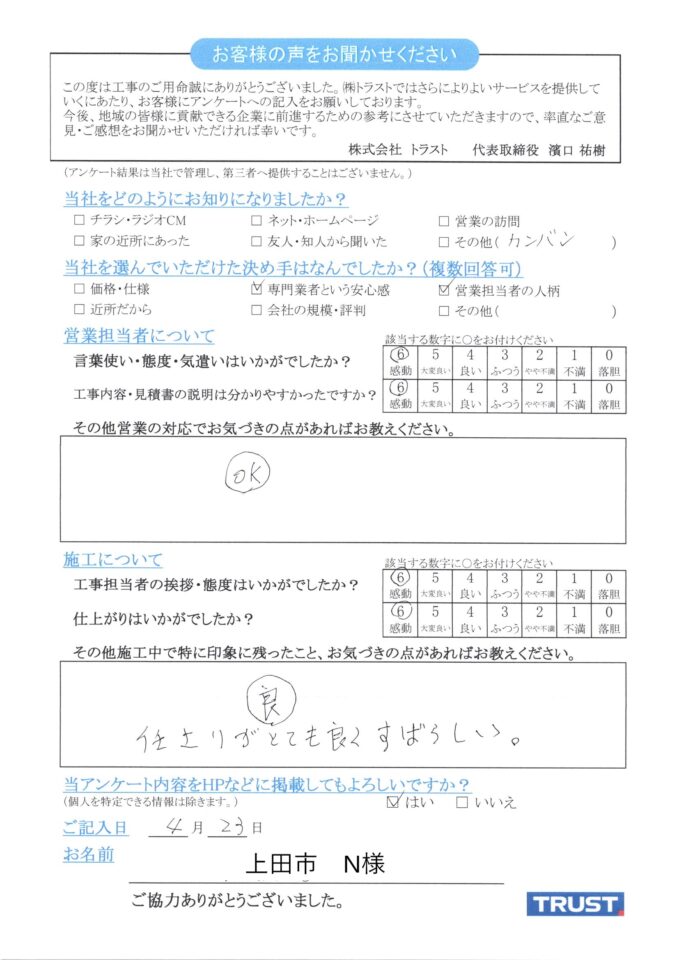 お客様の声をお聞かせください
この度は工事のご用命誠にありがとうございました。㈱トラストではさらによりよいサービスを提供して
いくにあたり、お客様にアンケートへの記入をお願いしております。
今後、地域の皆様に貢献できる企業に前進するための参考にさせていただきますので、率直なご意
見・ご感想をお聞かせいただければ幸いです。
株式会社 トラスト 代表取締役 濱口 祐樹
(アンケート結果は当社で管理し、第三者へ提供することはございません。)
当社をどのようにお知りになりましたか?
□ チラシ・ラジオCM □ ネット・ホームページ □ 営業の訪問
□ 家の近所にあった □ 友人・知人から聞いた □ その他( カンバン )
当社を選んでいただけた決め手はなんでしたか?(複数回答可)
□ 価格・仕様 ☑ 専門業者という安心感 ☑ 営業担当者の人柄
□ 近所だから □ 会社の規模・評判 □ その他( )
営業担当者について 該当する数字に○をお付けください
言葉使い・態度・気遣いはいかがでしたか? 6 5 4 3 2 1 0
感動 大変良い 良い ふつう やや不満 不満 落胆
工事内容・見積書の説明は分かりやすかったですか? 6 5 4 3 2 1 0
感動 大変良い 良い ふつう やや不満 不満 落胆
その他営業の対応でお気づきの点があればお教えください。
OK
施工について 該当する数字に○をお付けください
工事担当者の挨拶・態度はいかがでしたか? 6 5 4 3 2 1 0
感動 大変良い 良い ふつう やや不満 不満 落胆
仕上がりはいかがでしたか? 6 5 4 3 2 1 0
感動 大変良い 良い ふつう やや不満 不満 落胆
その他施工中で特に印象に残ったこと、お気づきの点があればお教えください。
良
仕上りがとても良くすばらしい。
当アンケート内容をHPなどに掲載してもよろしいですか?
(個人を特定できる情報は除きます。) ☑ はい □ いいえ
ご記入日 4 月 23 日
お名前 上田市 N様
ご協力ありがとうございました。
TRUST.